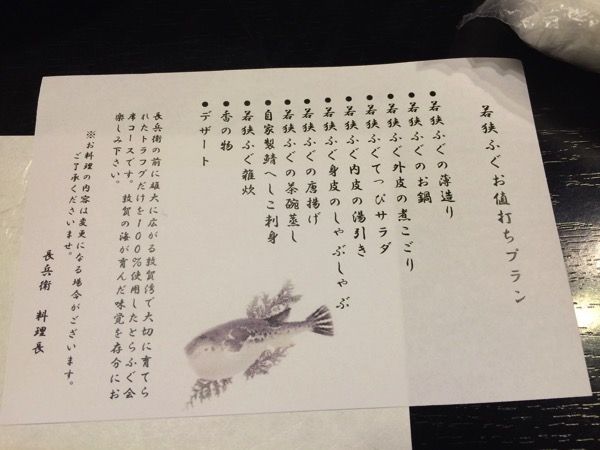 若狭ふぐお値打ちプラン
●若狭ふぐの薄造り
●若狭ふぐのお鍋
●若狭ふぐ外皮の煮こごり
●若狭ふぐてっぴサラダ
●若狭ふぐ内皮の湯引き
●若狭ふぐ身皮のしゃぶしゃぶ
●若狭ふぐの唐揚げ
●若狭ふぐの茶碗蒸し
●自家製鯖へしこ刺身
●若狭ふぐ雑炊
●香の物
●デザート
長兵衛の前に雄大に広がる敦賀湾で大切に育てら
れたトラフグだけを100%使用したとらふぐ会
席コースです。敦賀の海が育んだ味覚を存分にお
楽しみ下さい。
※お料理の内容は変更になる場合がございます。
ご了承くださいませ。
長兵衛 料理長